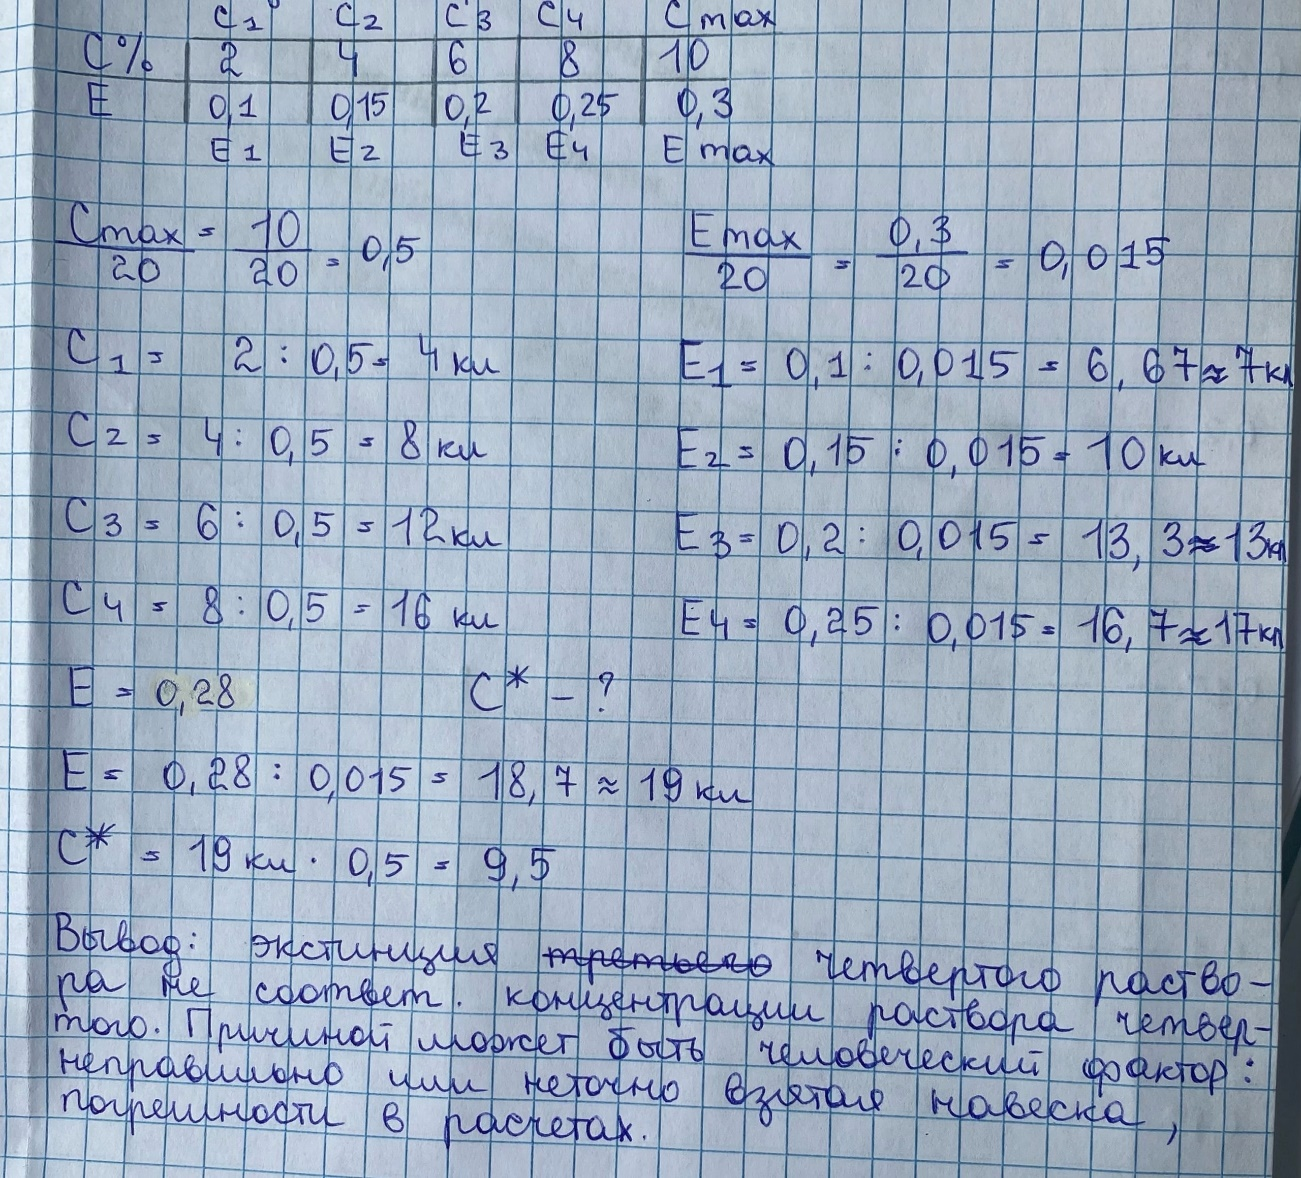 C1 C2 C3 C4 Cmax
C% 2 4 6 8 10
E 0,1 0,15 0,2 0,25 0,3
E1 E2 E3 E4 Emax
Cmax/20 = 10/20 = 0,5 Emax/20 = 0,3/20 = 0,015
C1 = 2 : 0,5 = 4 кл E1 = 0,1 : 0,015 = 6,67 ≈ 7 кл
C2 = 4 : 0,5 = 8 кл E2 = 0,15 : 0,015 = 10 кл
C3 = 6 : 0,5 = 12 кл E3 = 0,2 : 0,015 = 13,3 ≈ 13 кл
C4 = 8 : 0,5 = 16 кл E4 = 0,25 : 0,015 = 16,7 ≈ 17 кл
E = 0,28 C* - ?
E = 0,28 : 0,015 = 18,7 ≈ 19 кл
C* = 19 кл · 0,5 = 9,5
Вывод: экстинция третьего четвертого раство-
ра не соответ. концентрации раствора четвер-
того. Причиной может быть человеческий фактор:
неправильно или неточно взятая навеска,
погрешности в расчетах.